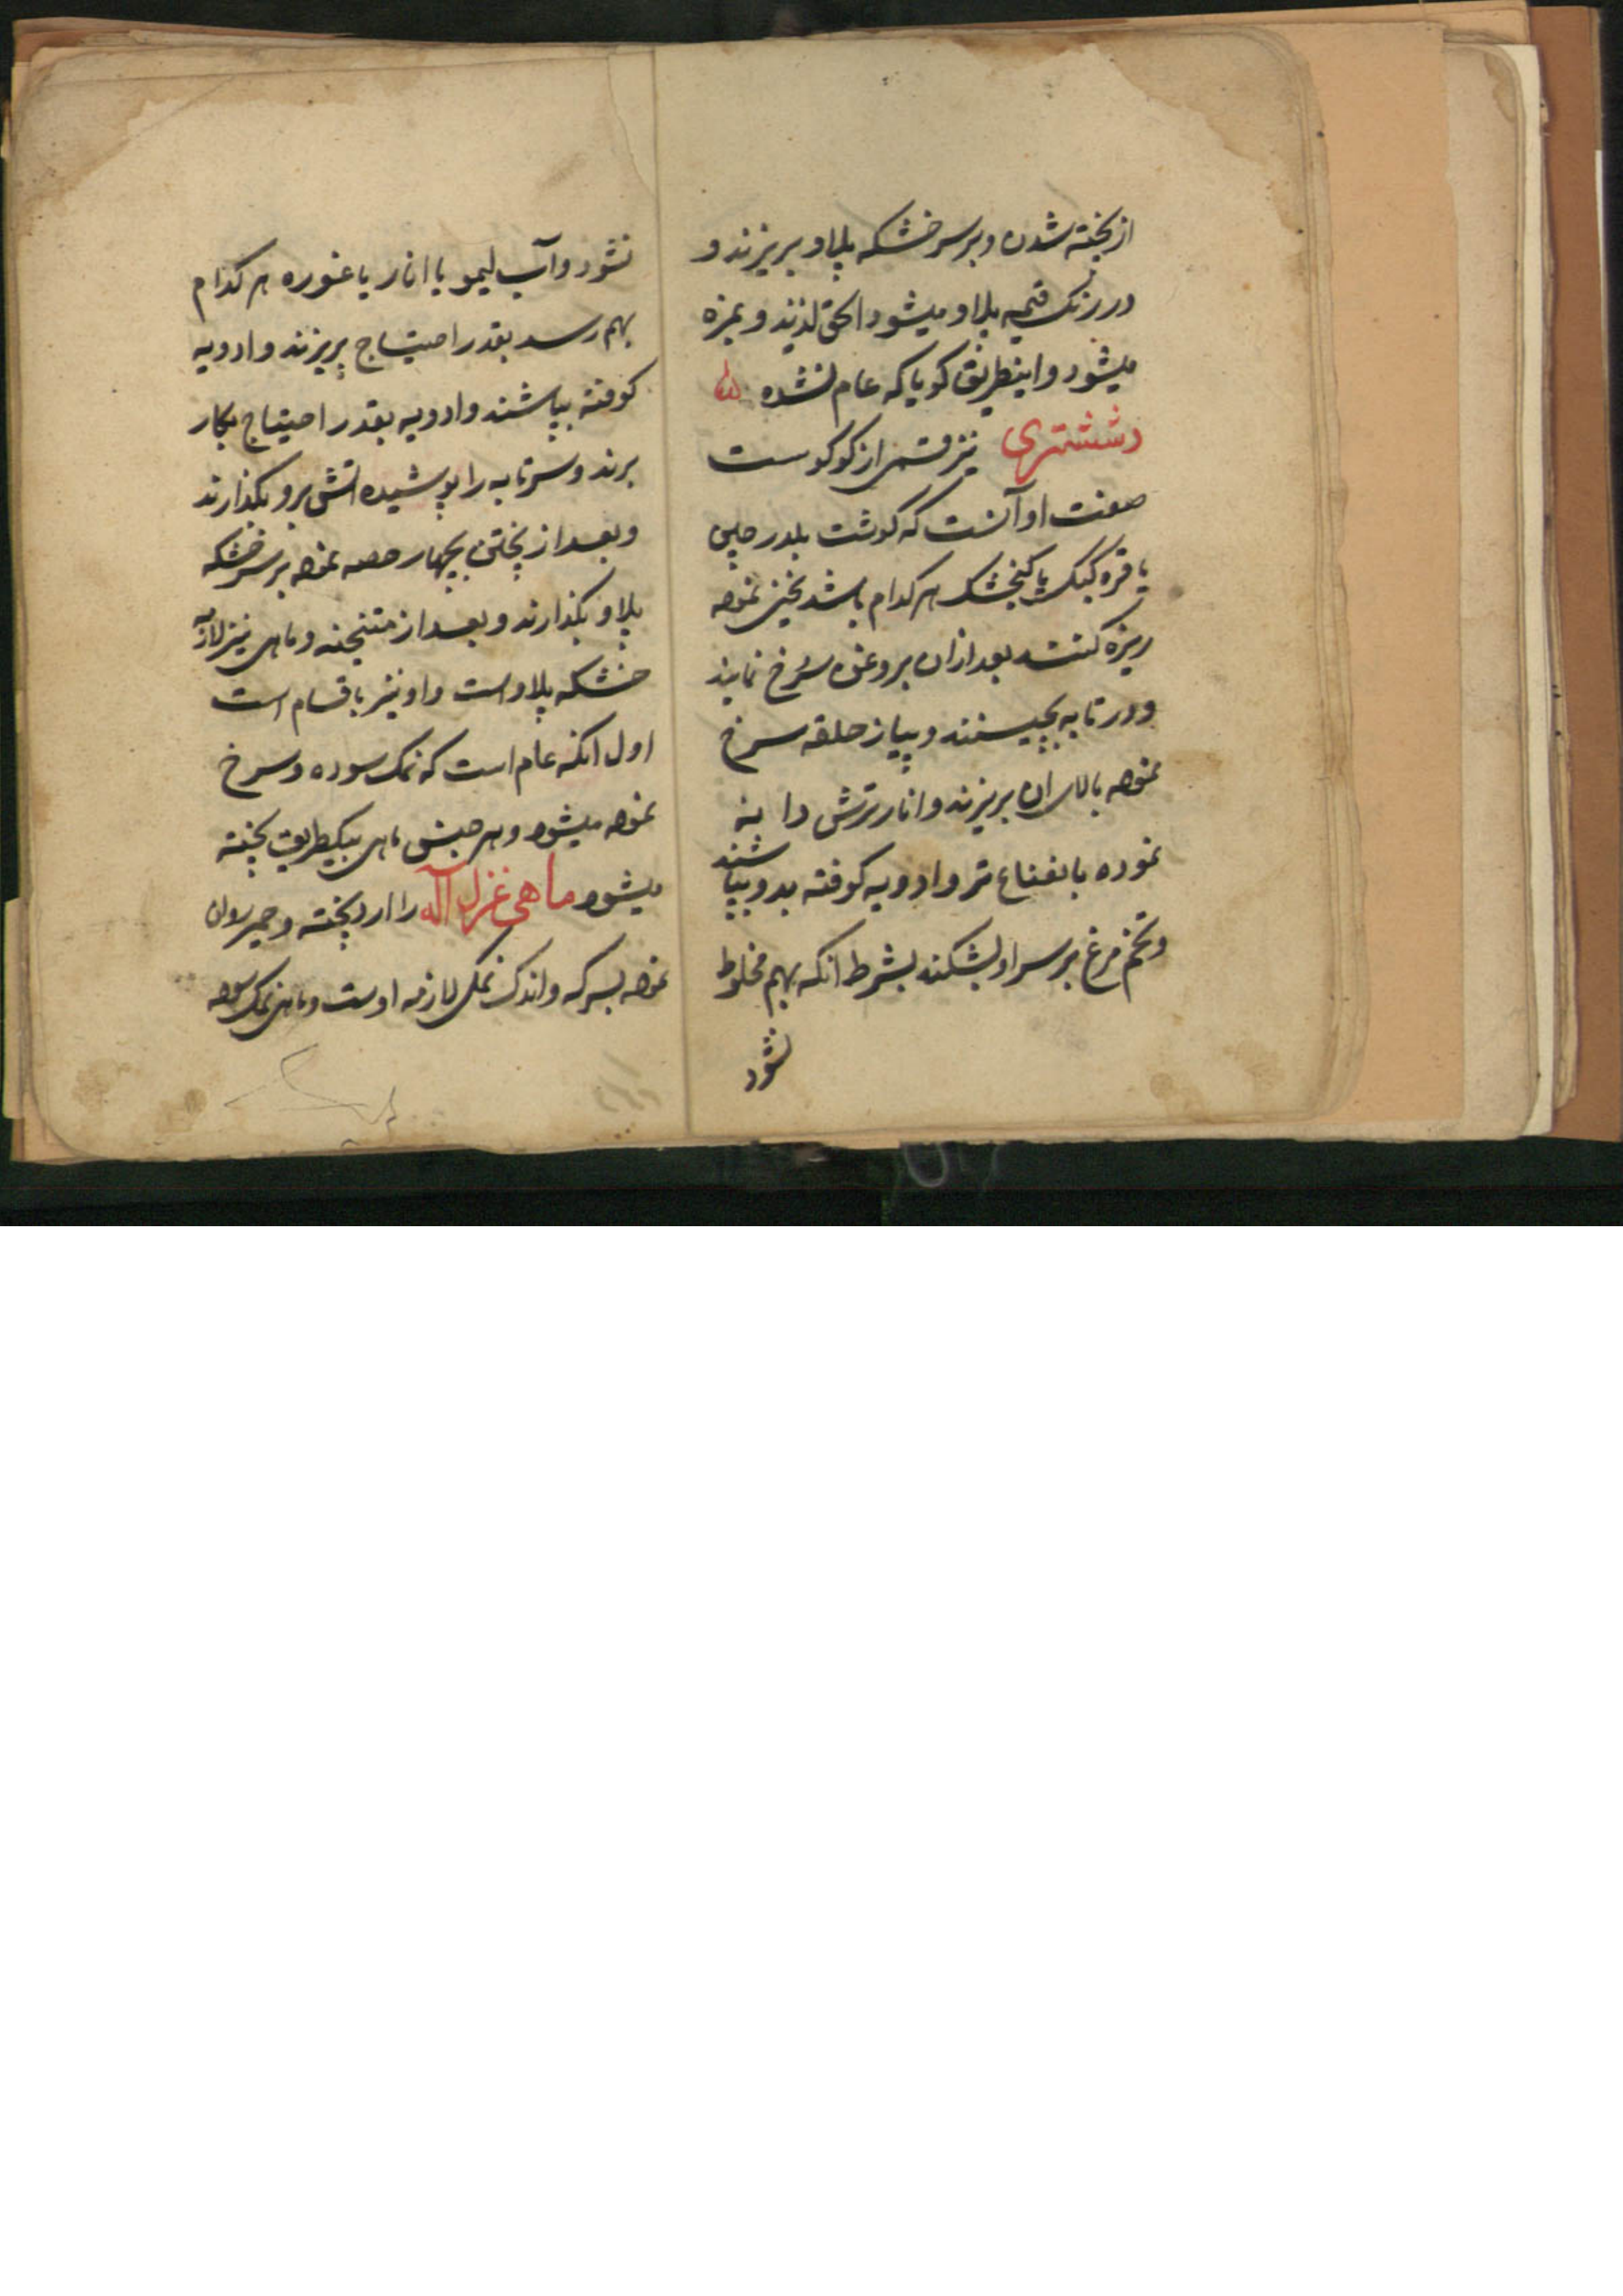 از پخته شدن و بر سر خشکه پلاو بریزند و
در رنک قیمه پلاو میشود الحق لذیذ و بمزه
میشود و اینطریق کویا که عام نشده
ششتری نیز قسمی از کوکوست
صفت او آنست که کوشت بلدرچین
یا قره کبک یا کنجشک هر کدام باشد نموده
ریزه کنند بعد ازان بروغن سرخ نمایند
و در تابه بچینند و پیاز حلقه سرخ
نموده بالای ان بریزند و انار ترش دانه
نموده با نعناع تر و ادویه کوفته بدو بپاشند
و تخم مرغ بر سر او بشکنند بشرط انکه بهم مخلوط
نشود
نشود و آب لیمو یا انار یا غوره هر کدام
بهم رسد بقدر احتیاج بریزند و ادویه
کوفته بپاشند و ادویه بقدر احتیاج بکار
برند و سر تابه را پوشیده اتش برو بکذارند
و بعد از پختن بچهار حصه نموده بر سر خشکه
پلاو بکذارند و بعد از متنجنه و ماهی نیز لازمه
خشکه پلاو است و او نیز باقسام است
اول انکه عام است که نمک سوده و سرخ
نموده میشود و هر جنس ماهی بیکطریق پخته
میشود ماهی غزل آله را ارد پخته و خمیر روان
نموده بسرکه و اندک نمکی لازمه اوست و ماهی نمک سوده